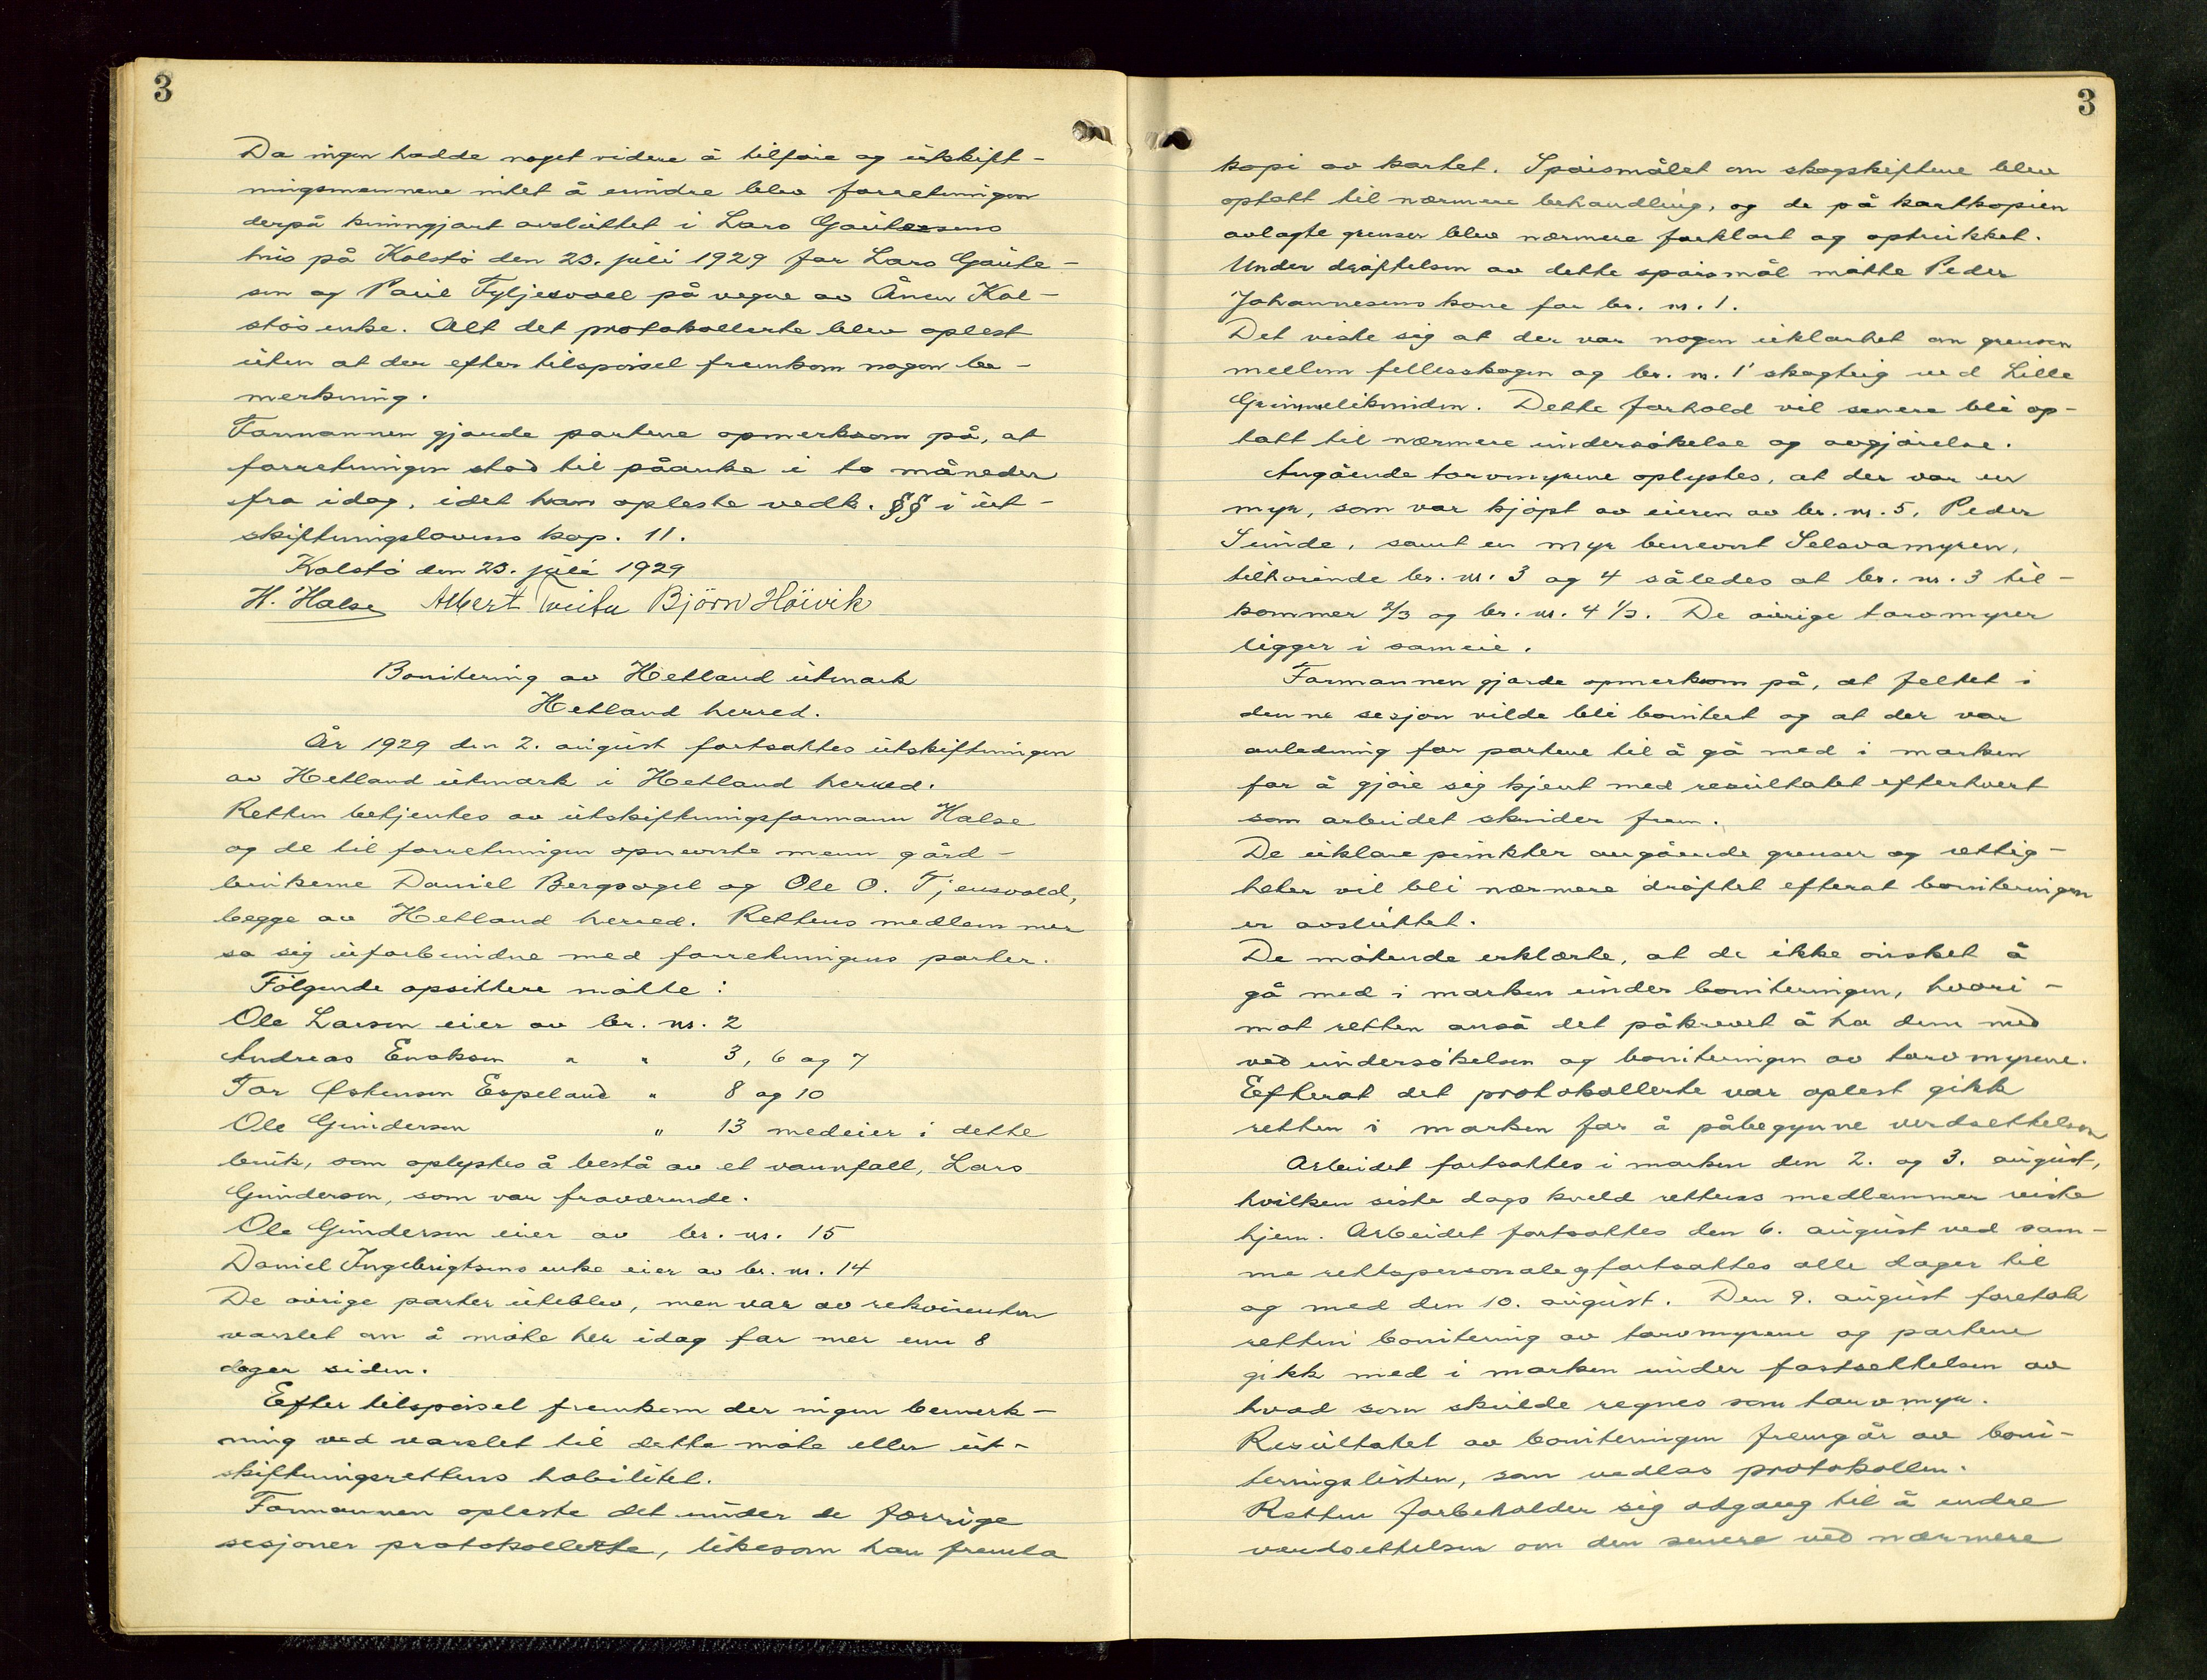 3
Da ingen hadde noget videre å tilføie og utskift-
ningsmennene intet å erindre blev forretningen
derpå kunngjort avsluttet i Lars Gautesens
hus på Kolstø den 23. juli 1929 for Lars Gaute-
sen og Paul Fyljesvoll på vegne av Ånen Kol-
støs enke. Alt det protokollerte blev oplest
uten at der efter tilspørsel fremkom nogen be-
merkning.
Formannen gjorde partene opmerksom på, at
forretningen stod til påanke i to måneder
fra idag, idet han opleste vedk. §§ i ut-
skiftningslovens kap. 11.
Kolstø den 23. juli 1929
H. Halse Albert Tveita Björn Höivik
Bonitering av Hetland utmark
Hetland herred.
År 1929 den 2. august fortsattes utskiftningen
av Hetland utmark i Hetland herred.
Retten betjentes av utskiftningsformann Halse
og de til forretningen opnevnte menn gård-
brukerne Daniel Bergsagel og Ole O. Tjensvold,
begge av Hetland herred. Rettens medlemmer
sa sig uforbundne med forretningens parter.
Følgende opsittere møtte:
Ole Larsen eier av br. nr. 2
Andreas Enoksen " " 3, 6 og 7
Tor Østensen Espeland " 8 og 10
Ole Gundersen " 13 medeier i dette
bruk, som oplystes å bestå av et vannfall, Lars
Gundersen, som var fraværende.
Ole Gundersen eier av br. nr. 15
Daniel Ingebrigtsens enke eier av br. nr. 14
De øvrige parter uteblev, men var av rekvirenten
varslet om å møte her idag for mer enn 8
dager siden.
Efter tilspørsel fremkom der ingen bemerk-
ning ved varslet til dette møte eller ut-
skiftningsrettens habilitet.
Formannen opleste det under de forrige
sesjoner protokollerte, likesom han fremla
3
kopi av kartet. Spørsmålet om skogskiftene blev
optatt til nærmere behandling, og de på kartkopien
avlagte grenser blev nærmere forklart og optrukket.
Under drøftelsen av dette spørsmål møtte Peder
Johannesens kone for br. nr. 1.
Det viste sig at der var nogen uklarhet om grensen
mellem fellesskogen og br. nr. 1' skogteig ved Lille
Grimmeliknuden. Dette forhold vil senere bli op-
tatt til nærmere undersøkelse og avgjørelse.
Angående torvmyrene oplystes, at der var en
myr, som var kjøpt av eieren av br. nr. 5, Peder
Sunde, samt en myr benevnt Selsvamyren,
tilhørende br. nr. 3 og 4 således at br. nr. 3 til-
kommer 2/3 og br. nr. 4 1/3. De øvrige torvmyrer
ligger i sameie.
Formannen gjorde opmerksom på, at feltet i
denne sesjon vilde bli bonitert og at der var
anledning for partene til å gå med i marken
for å gjøre sig kjent med resultatet efterhvert
som arbeidet skrider frem.
De uklare punkter angående grenser og rettig-
heter vil bli nærmere drøftet efterat boniteringen
er avsluttet.
De møtende erklærte, at de ikke ønsket å
gå med i marken under boniteringen, hvori-
mot retten anså det påkrevet å ha dem med
ved undersøkelsen og boniteringen av torvmyrene.
Efterat det protokollerte var oplest gikk
retten i marken for å påbegynne verdsettelsen
Arbeidet fortsattes i marken den 2. og 3. august,
hvilken siste dags kveld rettens medlemmer reiste
hjem. Arbeidet fortsattes den 6. august ved sam-
me rettspersonale og fortsattes alle dager til
og med den 10. august. Den 9. august foretok
retten bonitering av torvmyrene og partene
gikk med i marken under fastsettelsen av
hvad som skulde regnes som torvmyr.
Resultatet av boniteringen fremgår av boni-
teringslisten, som vedlas protokollen.
Retten forbeholder sig adgang til å endre
verdsettelsen om den senere ved nærmere